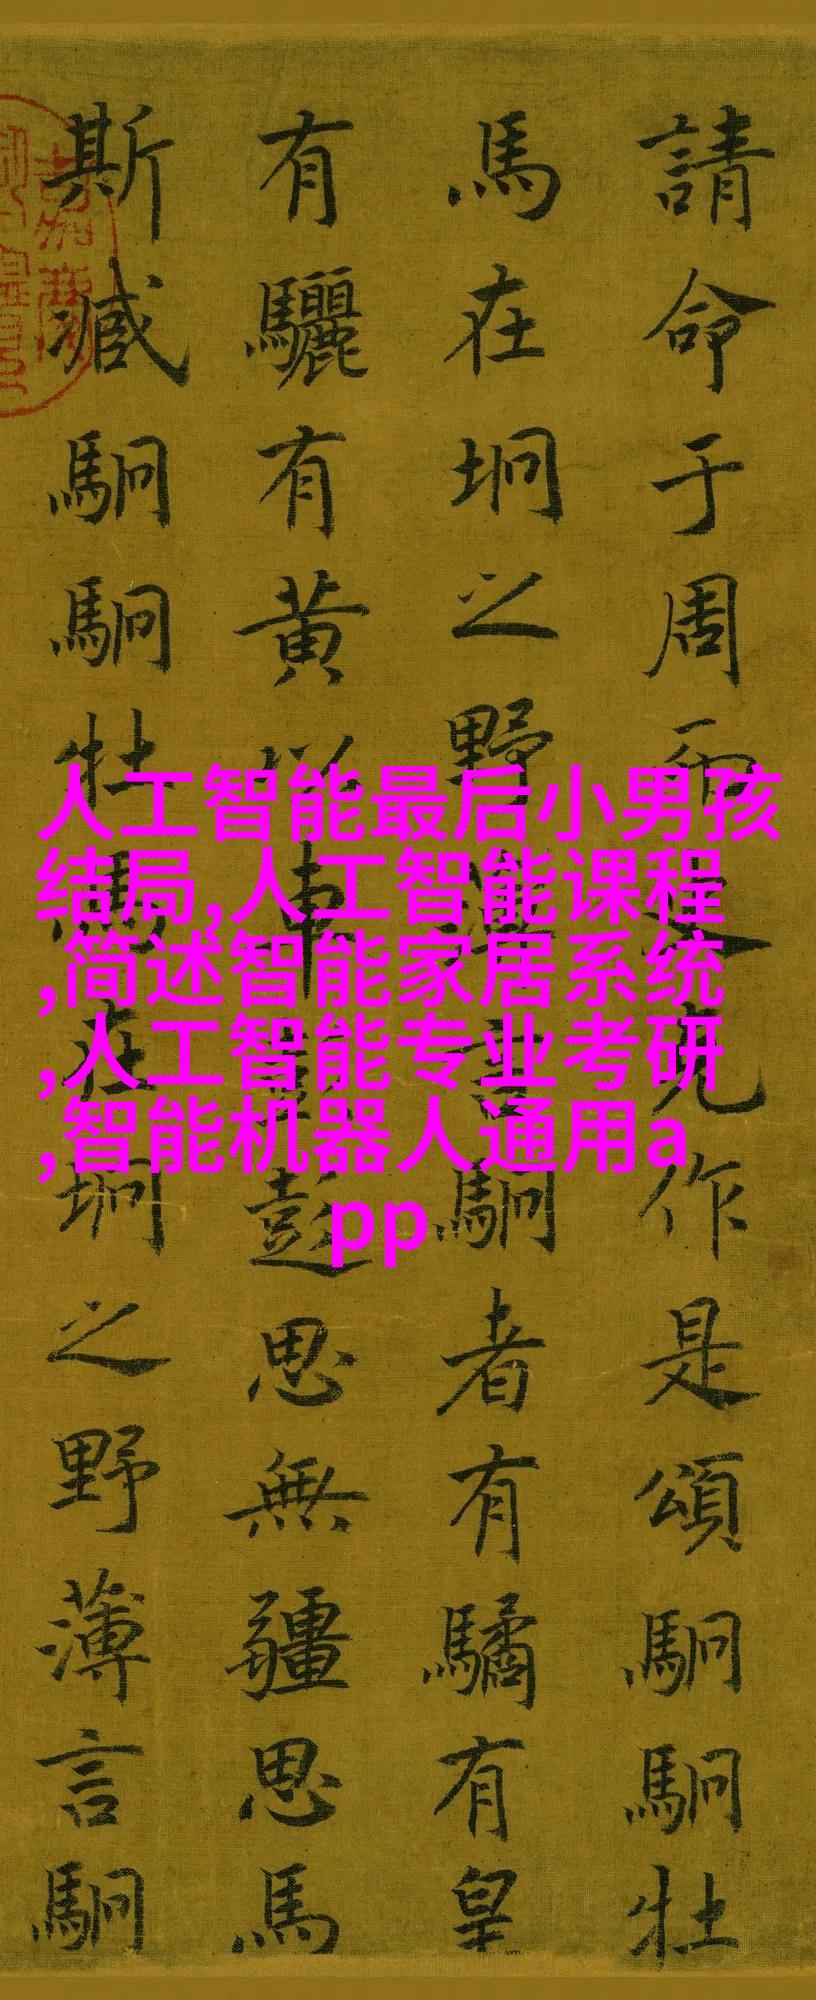 請命于周而史克作是頌駉駉牡
馬在坰之野薄言駉者有驈有皇
有驪有黃以車彭彭思無疆思馬
斯臧駉駉牡馬在坰之野薄言駉
人工智能最后小男孩
结局,人工智能课程
,简述智能家居系统
,人工智能专业考研
,智能机器人通用a
pp